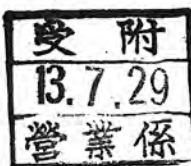 受附
13.7.29
營業係